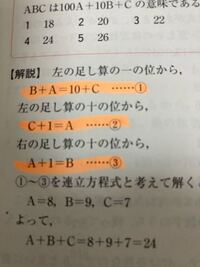 ABCは100A+10B+Cの意味である
1 18 2 20 3 22
4 24 5 26
【解説】 左の足し算の一の位から,
B+A=10+C ……①
左の足し算の十の位から,
C+1=A ……②
右の足し算の十の位から,
A+1=B ……③
①~③を連立方程式と考えて解く
A=8, B=9, C=7
よって,
A+B+C=8+9+7=24